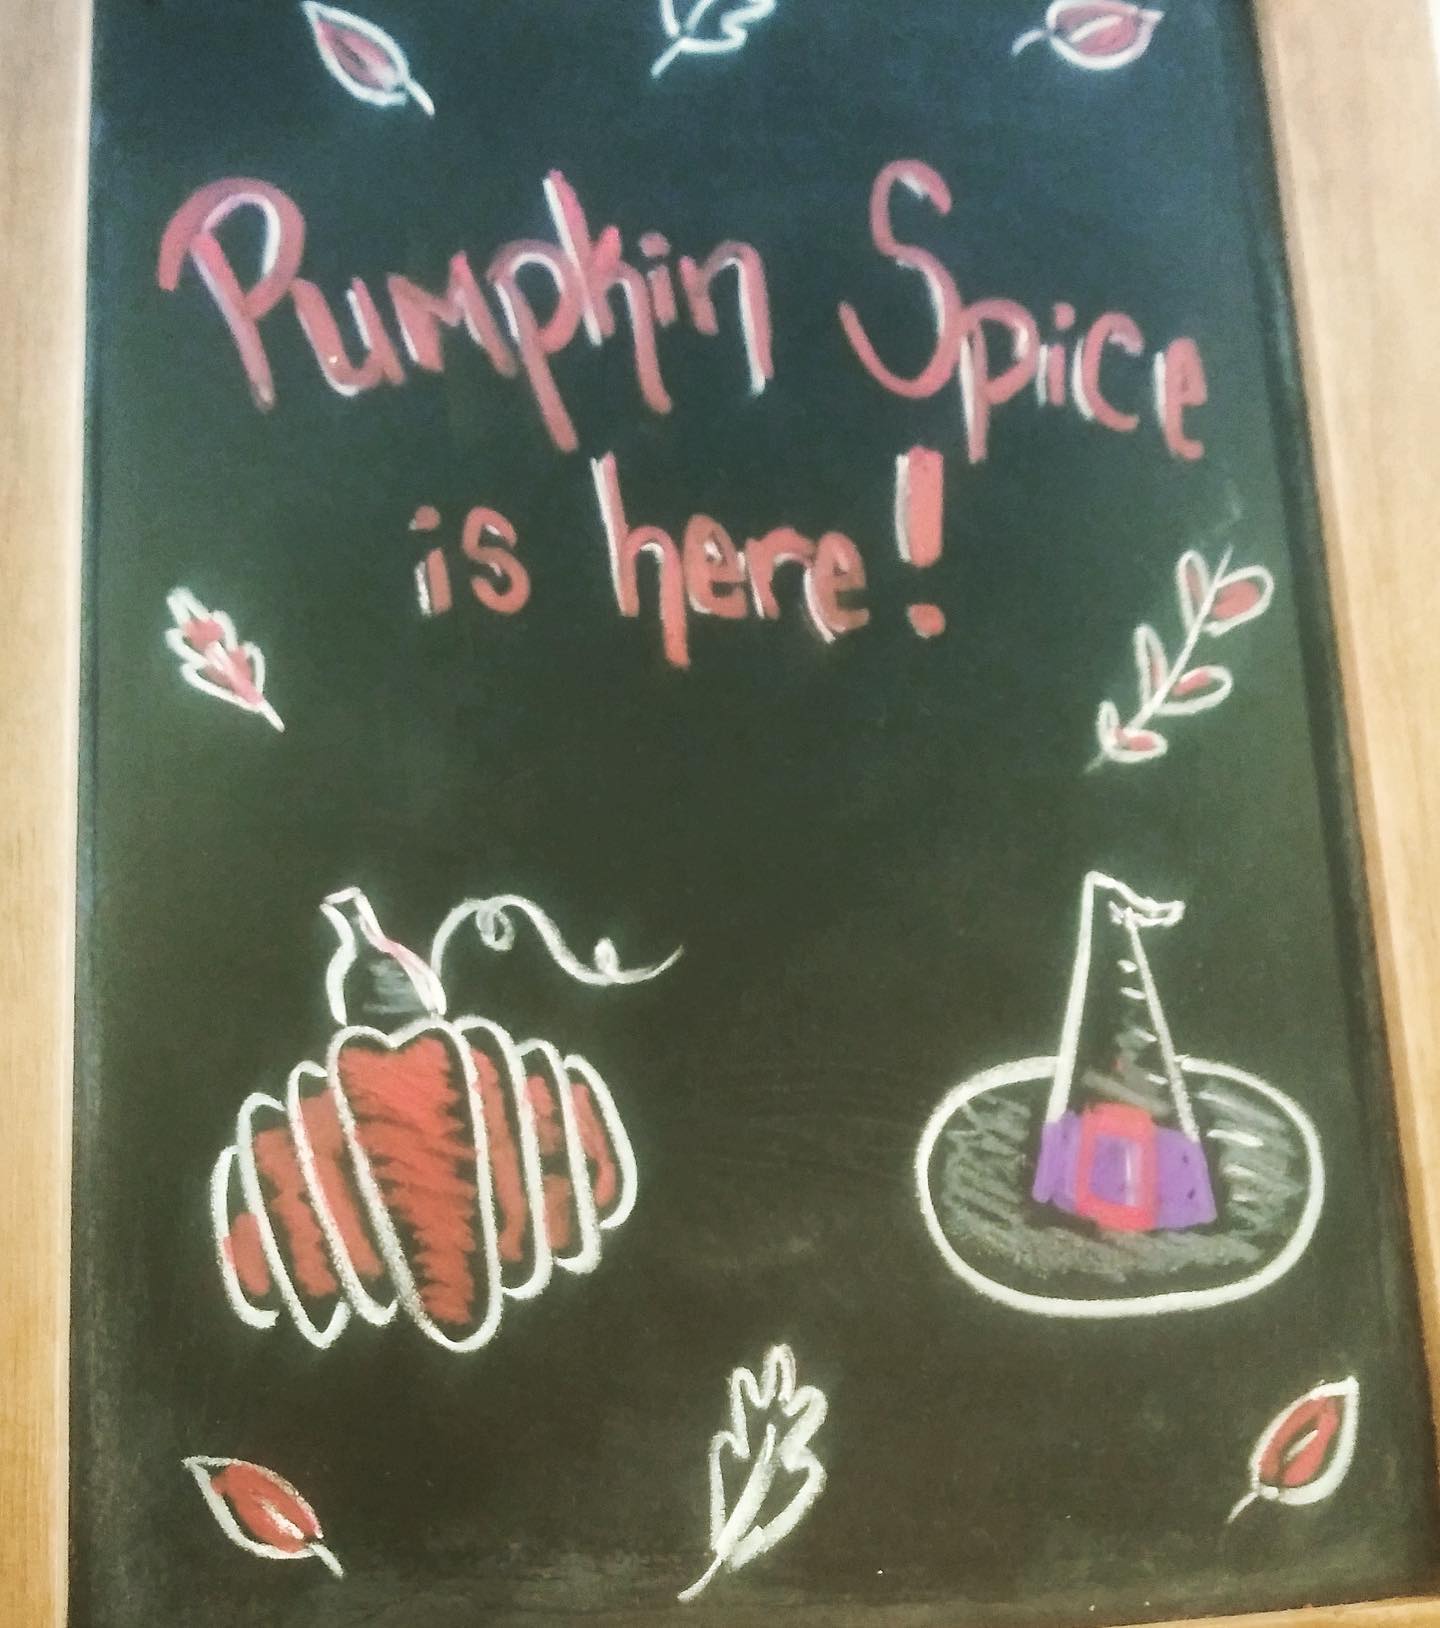 Pumpkin Spice
is here!